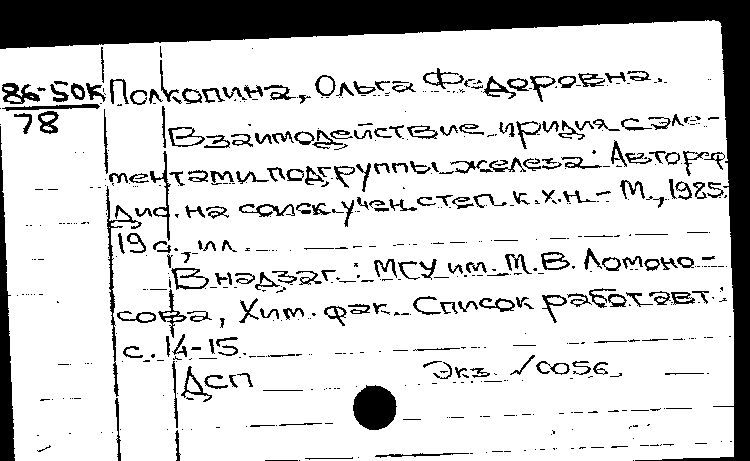 86-50К
78
Полкопина, Ольга Федоровна.
Взаимодействие иридия с эле-
ментами подгруппы железа: Автореф.
Дис. на соиск. учен. степ. к.х.н. - М., 1985.
19 с., ил.
В надзаг.: МГУ им. М.В. Ломоно-
сова, Хим. фак. Список работ авт.:
с. 14-15.
ДСП Экз. √0056